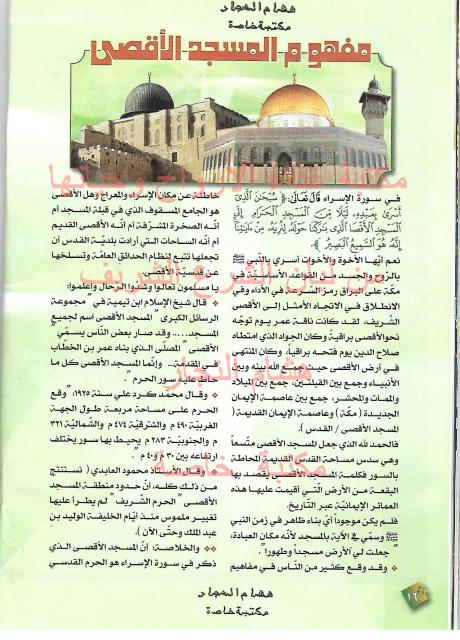 هشام النجار
مكتبة خاصة
مفهوم المسجد الأقصى
في سورة الإسراء قال تعالى: ﴿ سُبْحَٰنَ الَّذِي
أَسْرَىٰ بِعَبْدِهِ لَيْلًا مِّنَ الْمَسْجِدِ الْحَرَامِ إِلَى
الْمَسْجِدِ الْأَقْصَا الَّذِي بَٰرَكْنَا حَوْلَهُ لِنُرِيَهُ مِنْ ءَايَٰتِنَا
إِنَّهُ هُوَ السَّمِيعُ الْبَصِيرُ ﴾
نعم أيّها الأخوة والأخوات أسري بالنّبي ﷺ
بالرّوح والجسد من القواعد الأساسيّة في
مكّة على البراق رمز السّرعة في الأداء وفي
الانطلاق في الاتجاه الأمثل إلى الأقصى
الشّريف، لقد كانت ناقة عمر يوم توجّه
نحوالأقصى براقيةً وكان الجواد الذي امتطاه
صلاح الدين يوم فتحه براقياً، وكان المنتهى
في أرض الأقصى حيث جمع الله بينه وبين
الأنبياء وجمع بين القبلتين، جمع بين الميلاد
والممات والمحشر، جمع بين عاصمة الإيمان
الجديدة ( مكّة ) وعاصمة الإيمان القديمة (
المسجد الأقصى / القدس ).
فالحمد لله الذي جعل المسجد الأقصى متّسعاً
وهي سدس مساحة القدس القديمة المحاطة
بالسور فكلمة المسجد الأقصى يقصد بها
البقعة من الأرض الّتي أقيمت عليها هذه
العمائر الإيمانيّة عبر التّاريخ.
فلم يكن موجوداً أيّ بناء ظاهر في زمن النبي
ﷺ وسمّي في الآية بالمسجد لأنّه مكان العبادة،
"جعلت لي الأرض مسجداً وطهورا".
❖ وقد وقع كثير من النّاس في مفاهيم
خاطئة عن مكان الإسراء والمعراج وهل الأقصى
هو الجامع المسقوف الذي في قبلة المسجد أم
أنّه الصخرة المشرّفة أم أنّه الأقصى القديم
أم أنّه الساحات التي أرادت بلديّة القدس أن
تجعلها تتبع لنظام الحدائق العامّة وتسلخها
عن قدسيّة الأقصى.
يا مسلمون تعالوا وشدّوا الرحال واعلموا:
❖ قال شيخ الإسلام ابن تيمية في "مجموعة
الرسائل الكبرى" المسجد الأقصى اسم لجميع
المسجد..... وقد صار بعض النّاس يسمّي "
الأقصى" المصلّى الذي بناه عمر بن الخطاب
في المقدّمة... وإنّما المسجد الأقصى كل ما
حاط عليه سور الحرم".
❖ وقال محمد كرد علي سنة ١٩٢٥: "وقع
الحرم على مساحة مربعة طول الجهة
الغربيّة ٤٩٠ م والشرقيّة ٤٧٤ م والشماليّة ٣٢١
م والجنوبيّة ٢٨٣ م يحيط بها سور يختلف
ارتفاعه بين ٣٠ م و٤٠ م".
❖ وقال الأستاذ محمود العابدي ( نستنتج
من ذلك كله، أنّ حدود منطقة المسجد
الأقصى "الحرم الشّريف" لم يطرأ عليها
تغيير ملموس منذ أيّام الخليفة الوليد بن
عبد الملك وحتّى الآن ).
❖ والخلاصة: أنّ المسجد الأقصى الذي
ذكر في سورة الإسراء هو الحرم القدسي
١٦
هشام النجار
مكتبة خاصة